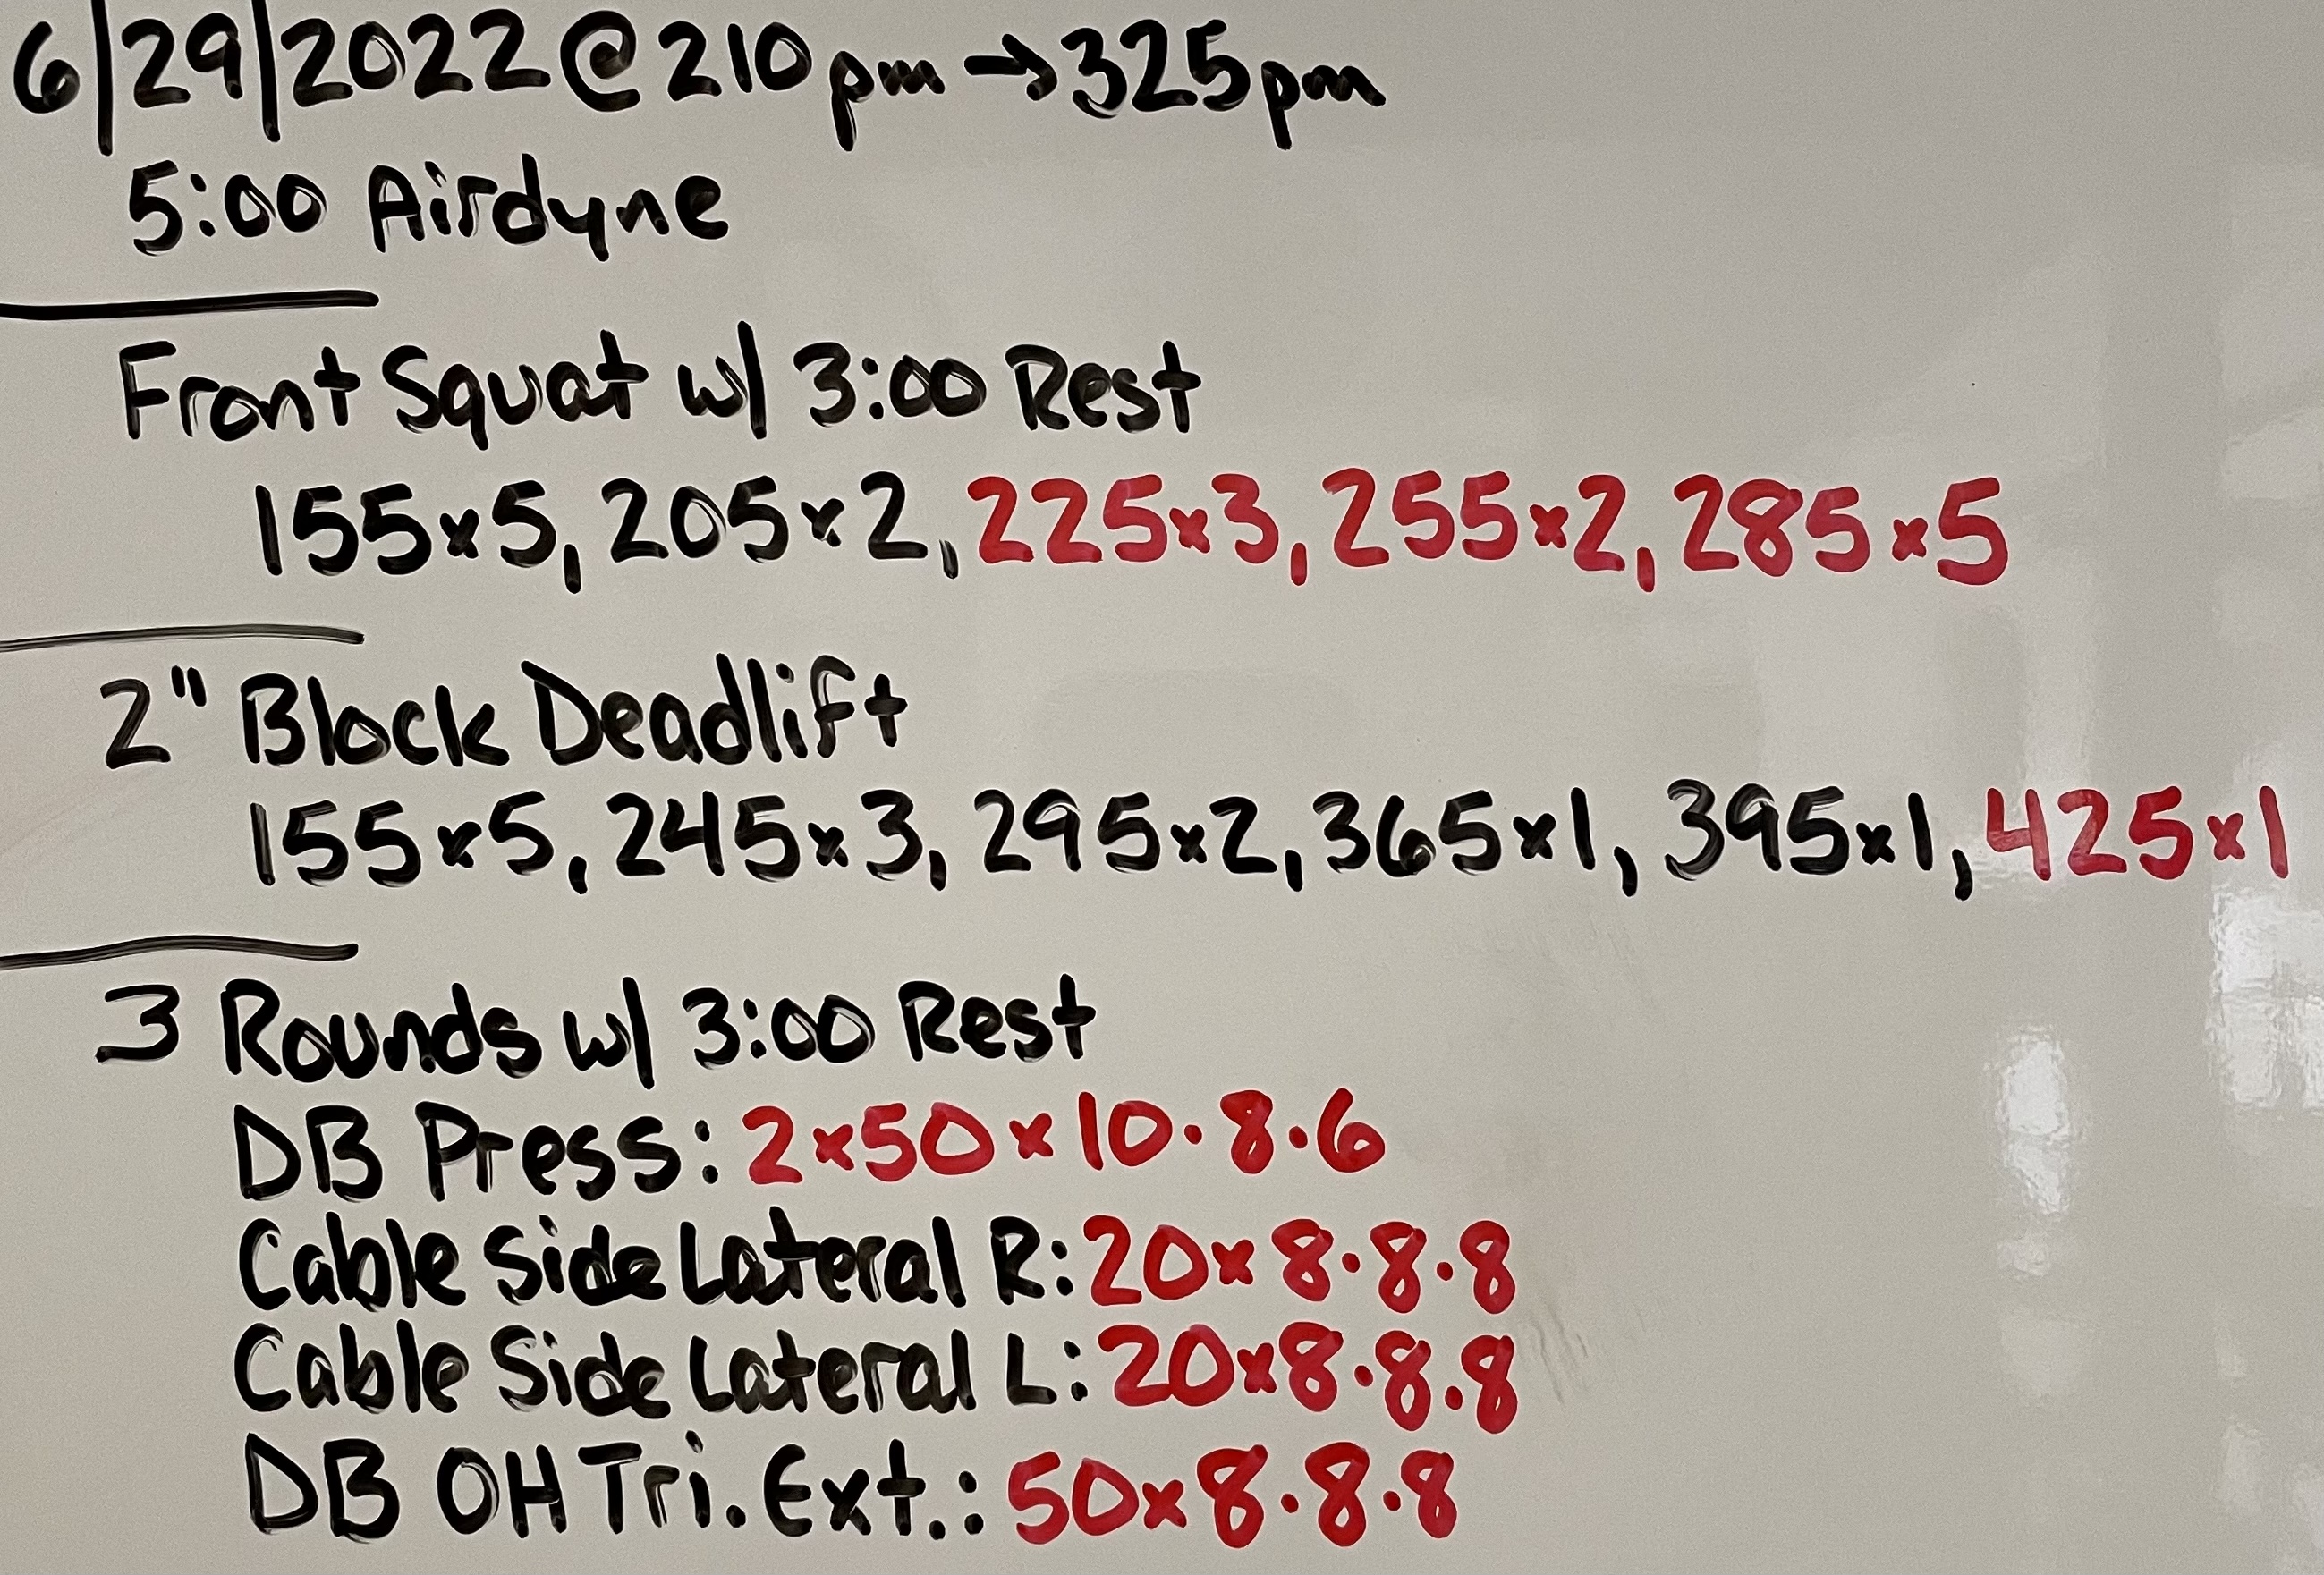 6/29/2022 @ 210pm → 325pm
5:00 Airdyne
Front Squat w/ 3:00 Rest
155x5, 205x2, 225x3, 255x2, 285x5
2" Block Deadlift
155x5, 245x3, 295x2, 365x1, 395x1, 425x1
3 Rounds w/ 3:00 Rest
DB Press: 2x50x10·8·6
Cable Side Lateral R: 20x8·8·8
Cable Side Lateral L: 20x8·8·8
DB OH Tri. Ext.: 50x8·8·8